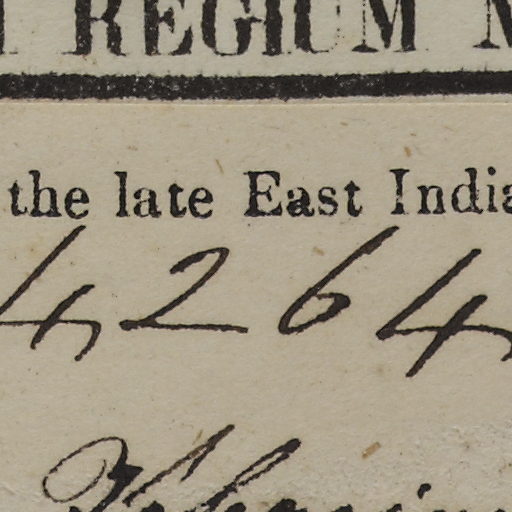 REGIUM
the late East India
4264